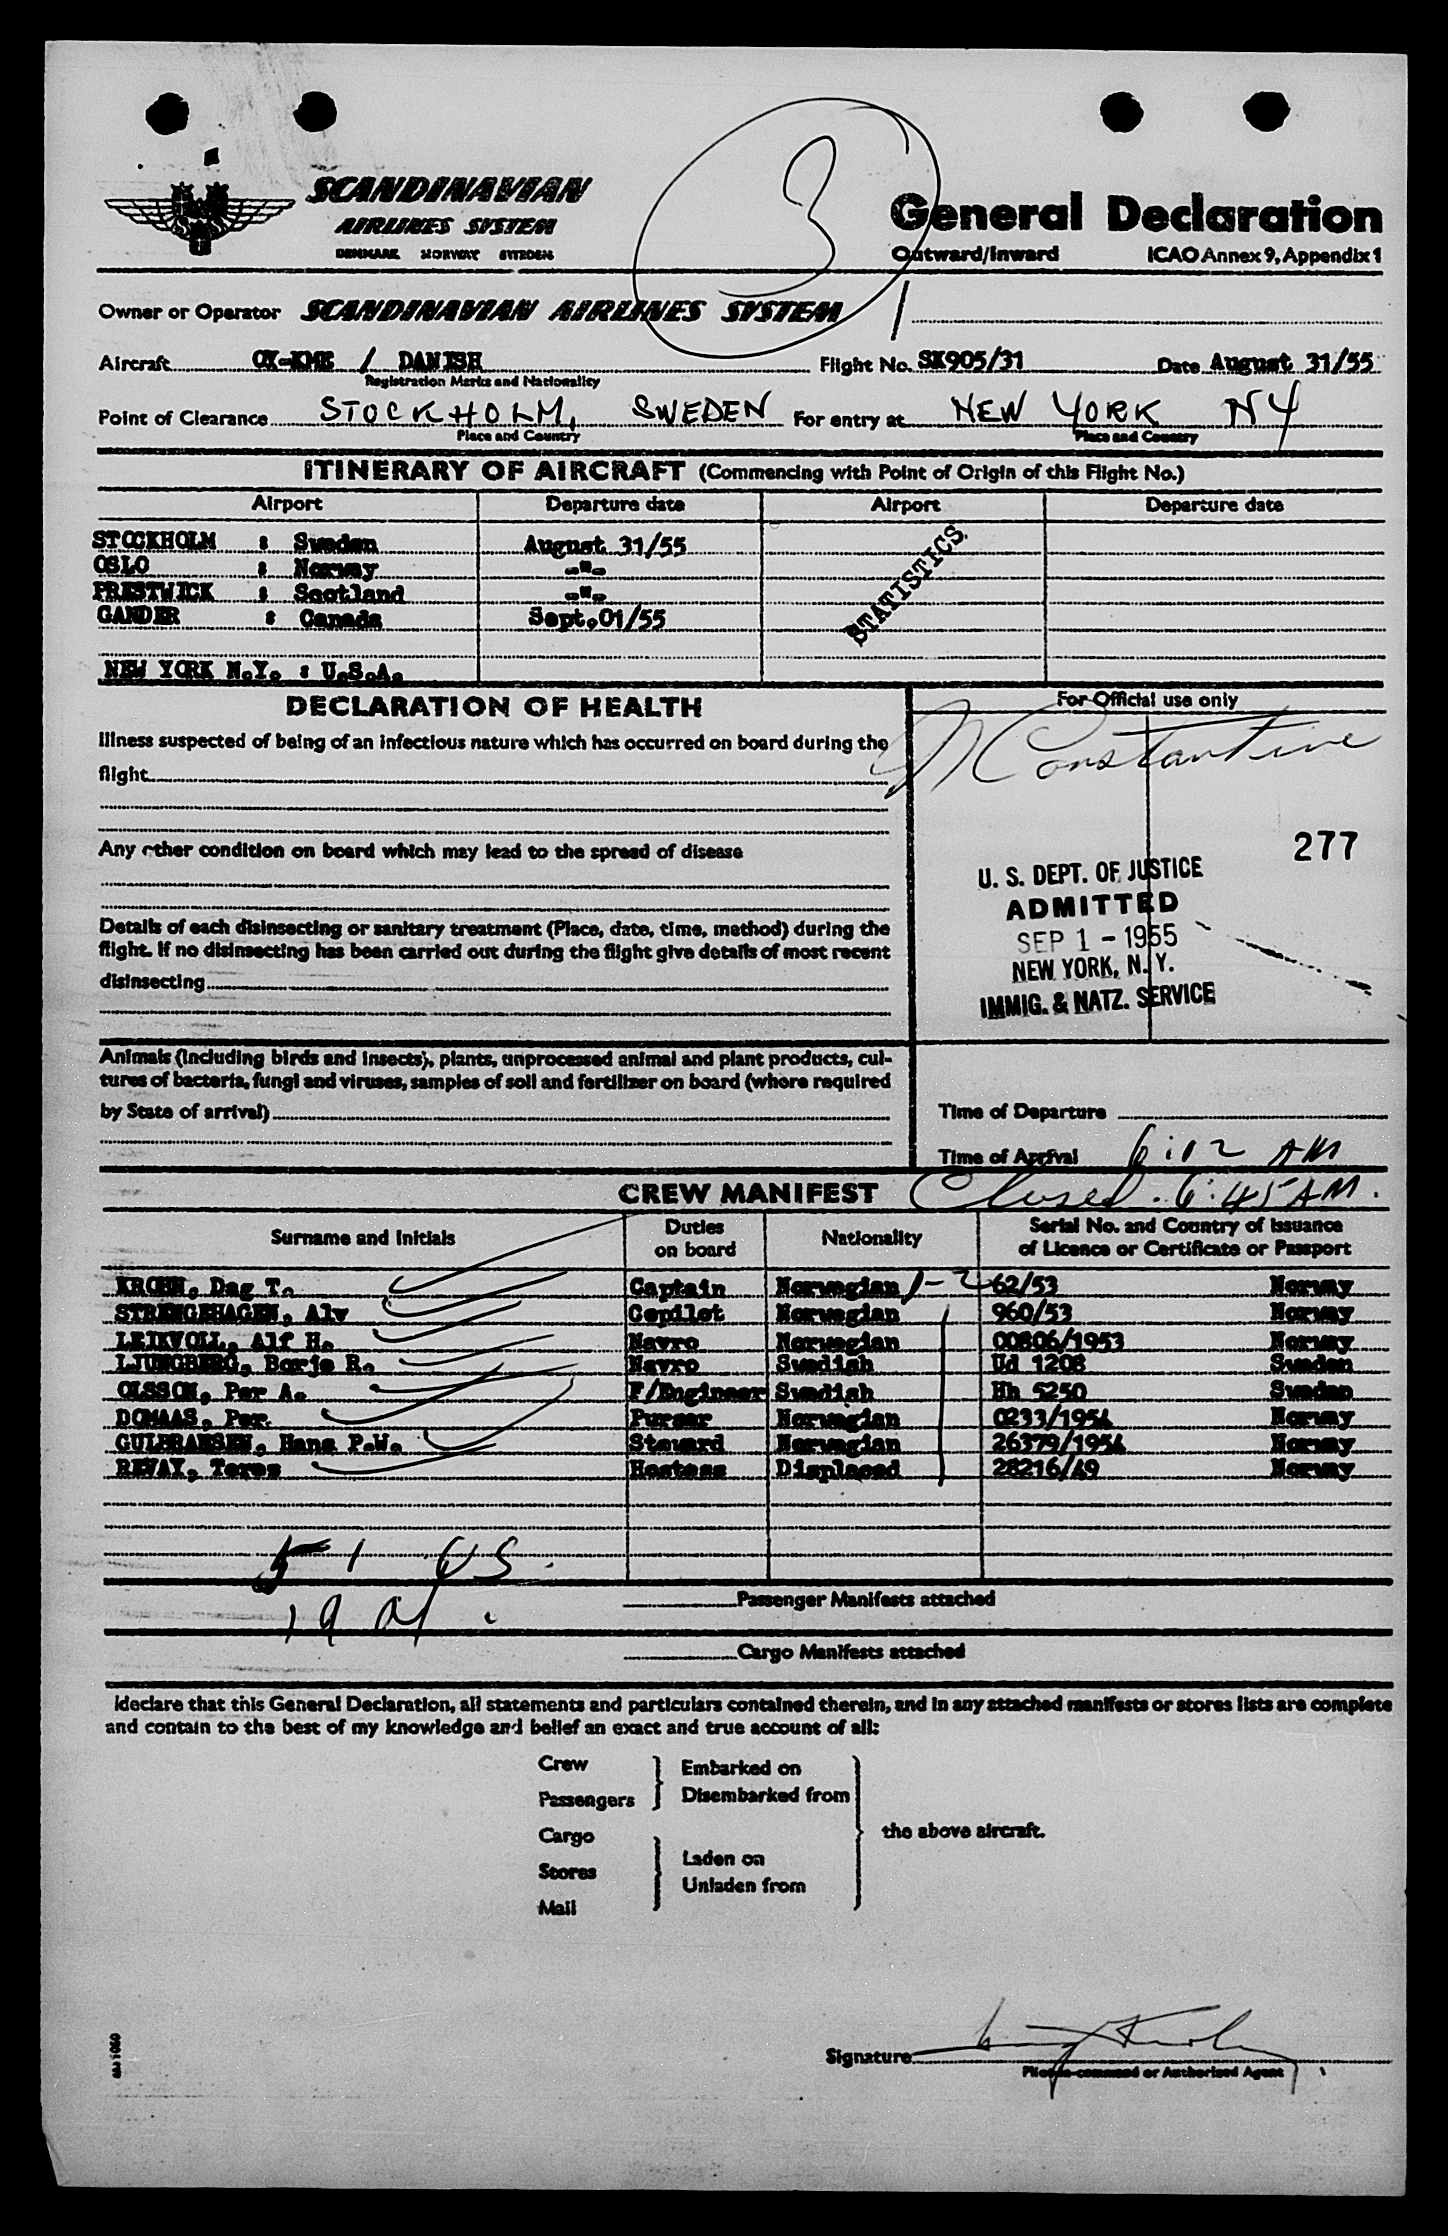 3
SCANDINAVIAN
AIRLINES SYSTEM
DENMARK NORWAY SWEDEN
General Declaration
Outward/Inward ICAO Annex 9, Appendix 1
Owner or Operator SCANDINAVIAN AIRLINES SYSTEM
Aircraft OY-KME / DANISH Flight No. SK905/31 Date August 31/55
Registration Marks and Nationality
Point of Clearance STOCKHOLM, SWEDEN For entry at NEW YORK NY
Place and Country Place and Country
ITINERARY OF AIRCRAFT (Commencing with Point of Origin of this Flight No.)
Airport Departure date Airport Departure date
STOCKHOLM : Sweden August 31/55
OSLO : Norway -"-
PRESTWICK : Scotland -"-
GANDER : Canada Sept.01/55
NEW YORK N.Y. : U.S.A.
STATISTICS
DECLARATION OF HEALTH
Illness suspected of being of an infectious nature which has occurred on board during the
flight
Any other condition on board which may lead to the spread of disease
Details of each disinsecting or sanitary treatment (Place, date, time, method) during the
flight. If no disinsecting has been carried out during the flight give details of most recent
disinsecting
Animals (including birds and insects), plants, unprocessed animal and plant products, cul-
tures of bacteria, fungi and viruses, samples of soil and fertilizer on board (where required
by State of arrival)
For Official use only
Constantine
277
U. S. DEPT. OF JUSTICE
ADMITTED
SEP 1 - 1955
NEW YORK, N. Y.
IMMIG. & NATZ. SERVICE
Time of Departure
Time of Arrival 6:12 AM
CREW MANIFEST Closed. 6:45 AM.
Surname and Initials Duties on board Nationality Serial No. and Country of Issuance of Licence or Certificate or Passport
KROHN, Dag T. Captain Norwegian 1-2 62/53 Norway
STRENGEHAGEN, Alv Copilot Norwegian 960/53 Norway
LEIKVOLL, Alf H. Navro Norwegian 00806/1953 Norway
LJUNGBERG, Borje R. Navro Swedish Ud 1208 Sweden
OLSSON, Per A. F/Engineer Swedish Hh 5250 Sweden
DOMAAS, Per. Purser Norwegian 0233/1954 Norway
GULBRANSEN, Hans P.W. Steward Norwegian 26379/1954 Norway
REVAY, Teres Hostess Displaced 28216/49 Norway
51 US.
19 al.
Passenger Manifests attached
Cargo Manifests attached
I declare that this General Declaration, all statements and particulars contained therein, and in any attached manifests or stores lists are complete
and contain to the best of my knowledge and belief an exact and true account of all:
Crew
Passengers
Embarked on
Disembarked from
Cargo
Stores
Mail
Laden on
Unladen from
the above aircraft.
Signature
Pilot-in-command or Authorized Agent